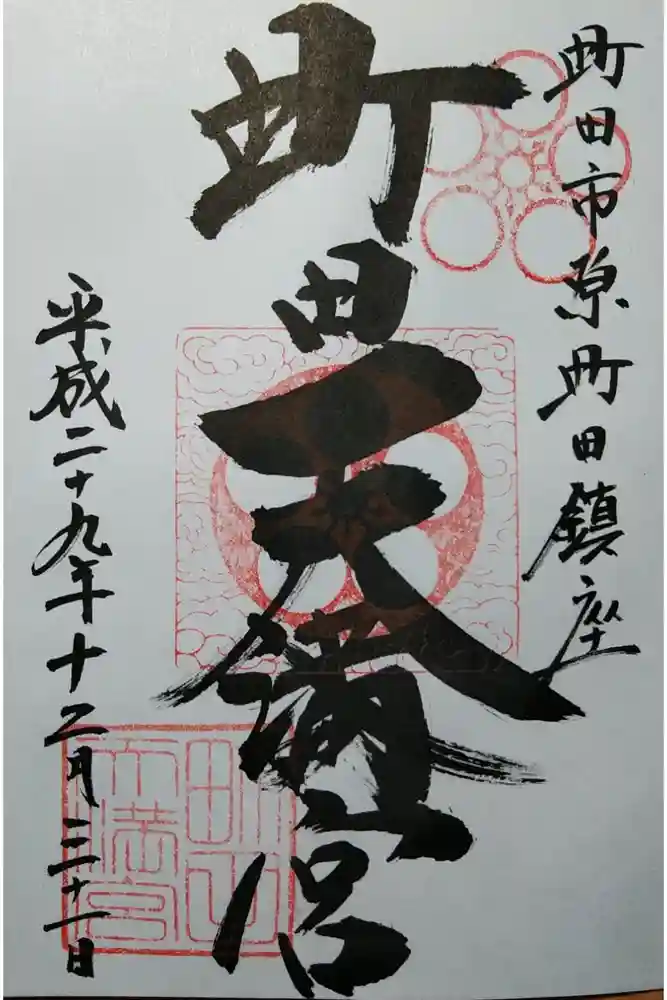 町田市原町田鎮座
町田天満宮
平成二十九年十二月三十一日
町田天満宮